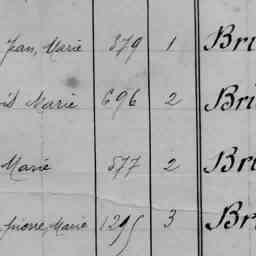 Jean, Marie 379 1 Bri
Marie 696 2 Bri
Marie 577 2 Bri
pierre, Marie 1295 3 Bri